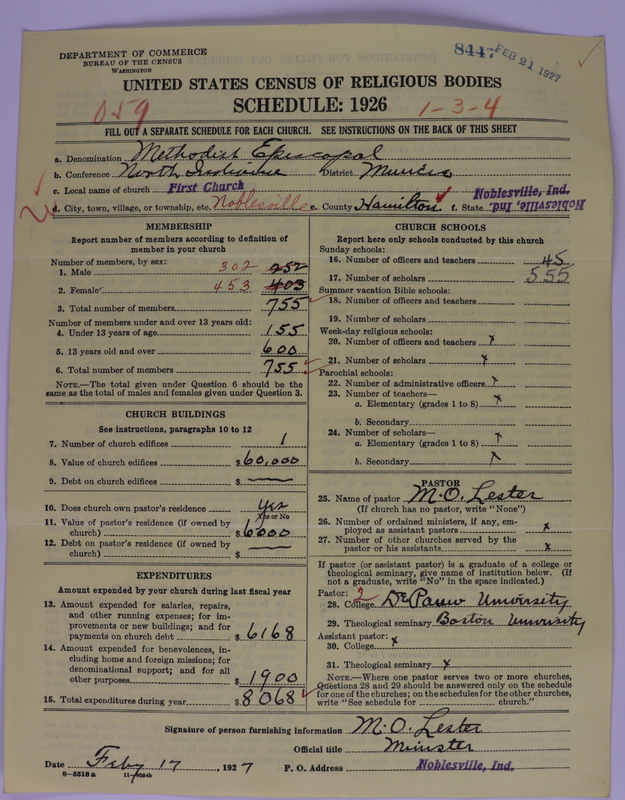 DEPARTMENT OF COMMERCE
BUREAU OF THE CENSUS
WASHINGTON
8447 FEB 21 1927
UNITED STATES CENSUS OF RELIGIOUS BODIES
SCHEDULE: 1926
059
1-3-4
FILL OUT A SEPARATE SCHEDULE FOR EACH CHURCH. SEE INSTRUCTIONS ON THE BACK OF THIS SHEET
a. Denomination Methodist Episcopal
b. Conference North Indiana District Muncie
c. Local name of church First Church
d. City, town, village, or township, etc. Noblesville e. County Hamilton f. State Noblesville, Ind.
Noblesville, Ind.
MEMBERSHIP
Report number of members according to definition of
member in your church
Number of members, by sex:
1. Male 302 252
2. Female 453 403
3. Total number of members 755
Number of members under and over 13 years old:
4. Under 13 years of age 155
5. 13 years old and over 600
6. Total number of members 755
NOTE.—The total given under Question 6 should be the
same as the total of males and females given under Question 3.
CHURCH BUILDINGS
See instructions, paragraphs 10 to 12
7. Number of church edifices 1
8. Value of church edifices $60,000
9. Debt on church edifices $
10. Does church own pastor's residence Yes
Yes or No
11. Value of pastor's residence (if owned by
church) $6000
12. Debt on pastor's residence (if owned by
church) $
EXPENDITURES
Amount expended by your church during last fiscal year
13. Amount expended for salaries, repairs,
and other running expenses; for im-
provements or new buildings; and for
payments on church debt $6168
14. Amount expended for benevolences, in-
cluding home and foreign missions; for
denominational support; and for all
other purposes $1900
15. Total expenditures during year $8068
CHURCH SCHOOLS
Report here only schools conducted by this church
Sunday schools:
16. Number of officers and teachers 45
17. Number of scholars 555
Summer vacation Bible schools:
18. Number of officers and teachers
19. Number of scholars
Week-day religious schools:
20. Number of officers and teachers x
21. Number of scholars x
Parochial schools:
22. Number of administrative officers x
23. Number of teachers—
a. Elementary (grades 1 to 8) x
b. Secondary
24. Number of scholars—
a. Elementary (grades 1 to 8) x
b. Secondary x
PASTOR
25. Name of pastor M. O. Lester
(If church has no pastor, write "None")
26. Number of ordained ministers, if any, em-
ployed as assistant pastors x
27. Number of other churches served by the
pastor or his assistants x
If pastor (or assistant pastor) is a graduate of a college or
theological seminary, give name of institution below. (If
not a graduate, write "No" in the space indicated.)
Pastor: 2
28. College DePauw University
29. Theological seminary Boston University
Assistant pastor:
30. College x
31. Theological seminary x
NOTE.—Where one pastor serves two or more churches,
Questions 28 and 29 should be answered only on the schedule
for one of the churches; on the schedules for the other churches,
write "See schedule for church."
Signature of person furnishing information M. O. Lester
Official title Minister
Date Feby 17, 1927 P. O. Address Noblesville, Ind.
8-5518a